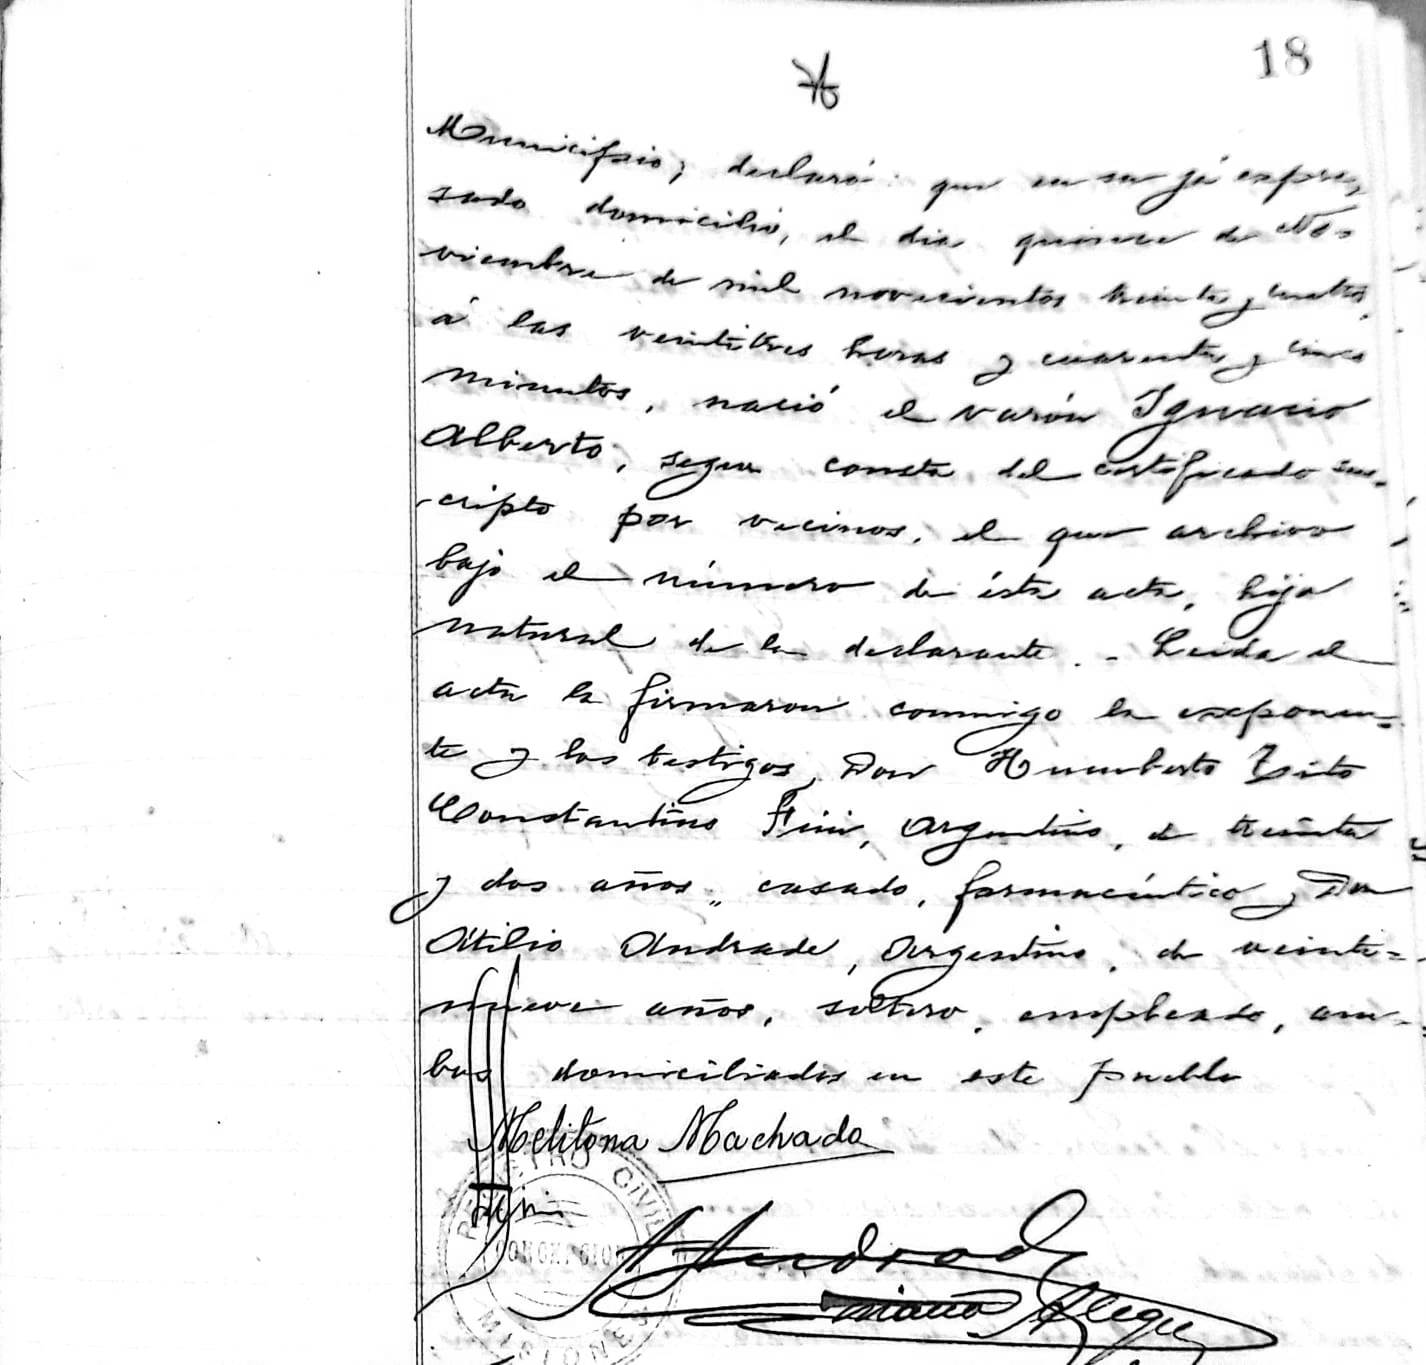 18
Municipio; declaró: que en su já expre-
sado domicilio, el dia quince de No=
viembre de mil novecientos treinta y cuatro,
á las veintitres horas y cuarenta y cinco
minutos, nació el varón Ignacio
Alberto, segun consta del certificado sus-
cripto por vecinos, el que archivo
bajo el número de ésta acta, hijo
natural de la declarante. - Leida el
acta la firmaron conmigo la exponen=
te y los testigos, Don Humberto Tito
Constantino Fini, Argentino, de treinta
y dos años, casado, farmacéutico y Don
Atilio Andrade, Argentino, de veinti=
nueve años, soltero, empleado, am=
bos domiciliados en este pueblo
Melitona Machado
Fini
A Andrade
Alegre
REGISTRO CIVIL
CONCEPCION
MISIONES